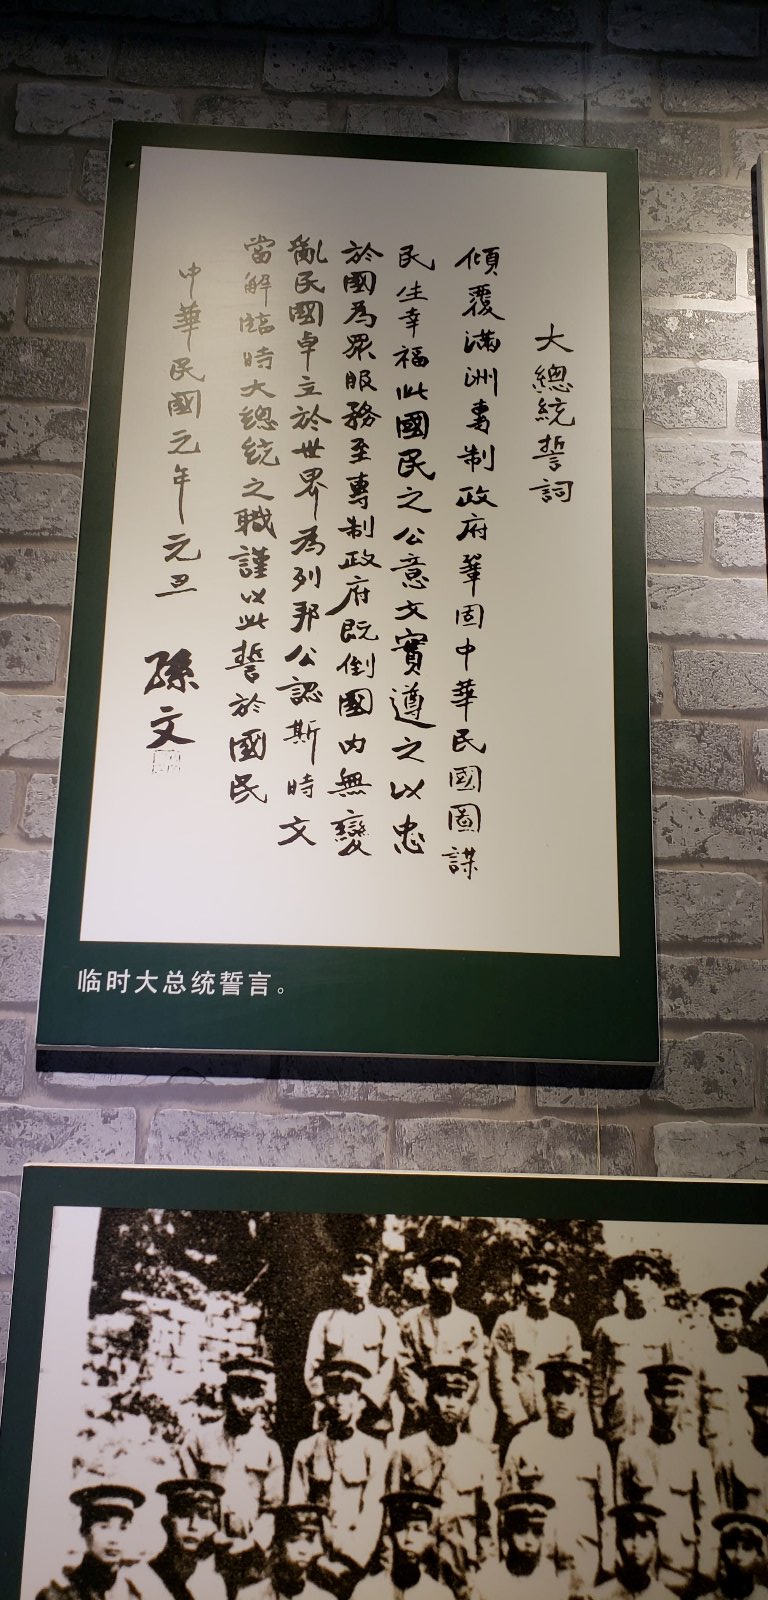 大總統誓詞
傾覆滿洲專制政府鞏固中華民國圖謀
民生幸福此國民之公意文實遵之以忠
於國為眾服務至專制政府既倒國內無變
亂民國卓立於世界為列邦公認斯時文
當解臨時大總統之職謹以此誓於國民
中華民國元年元旦
孫文
临时大总统誓言。